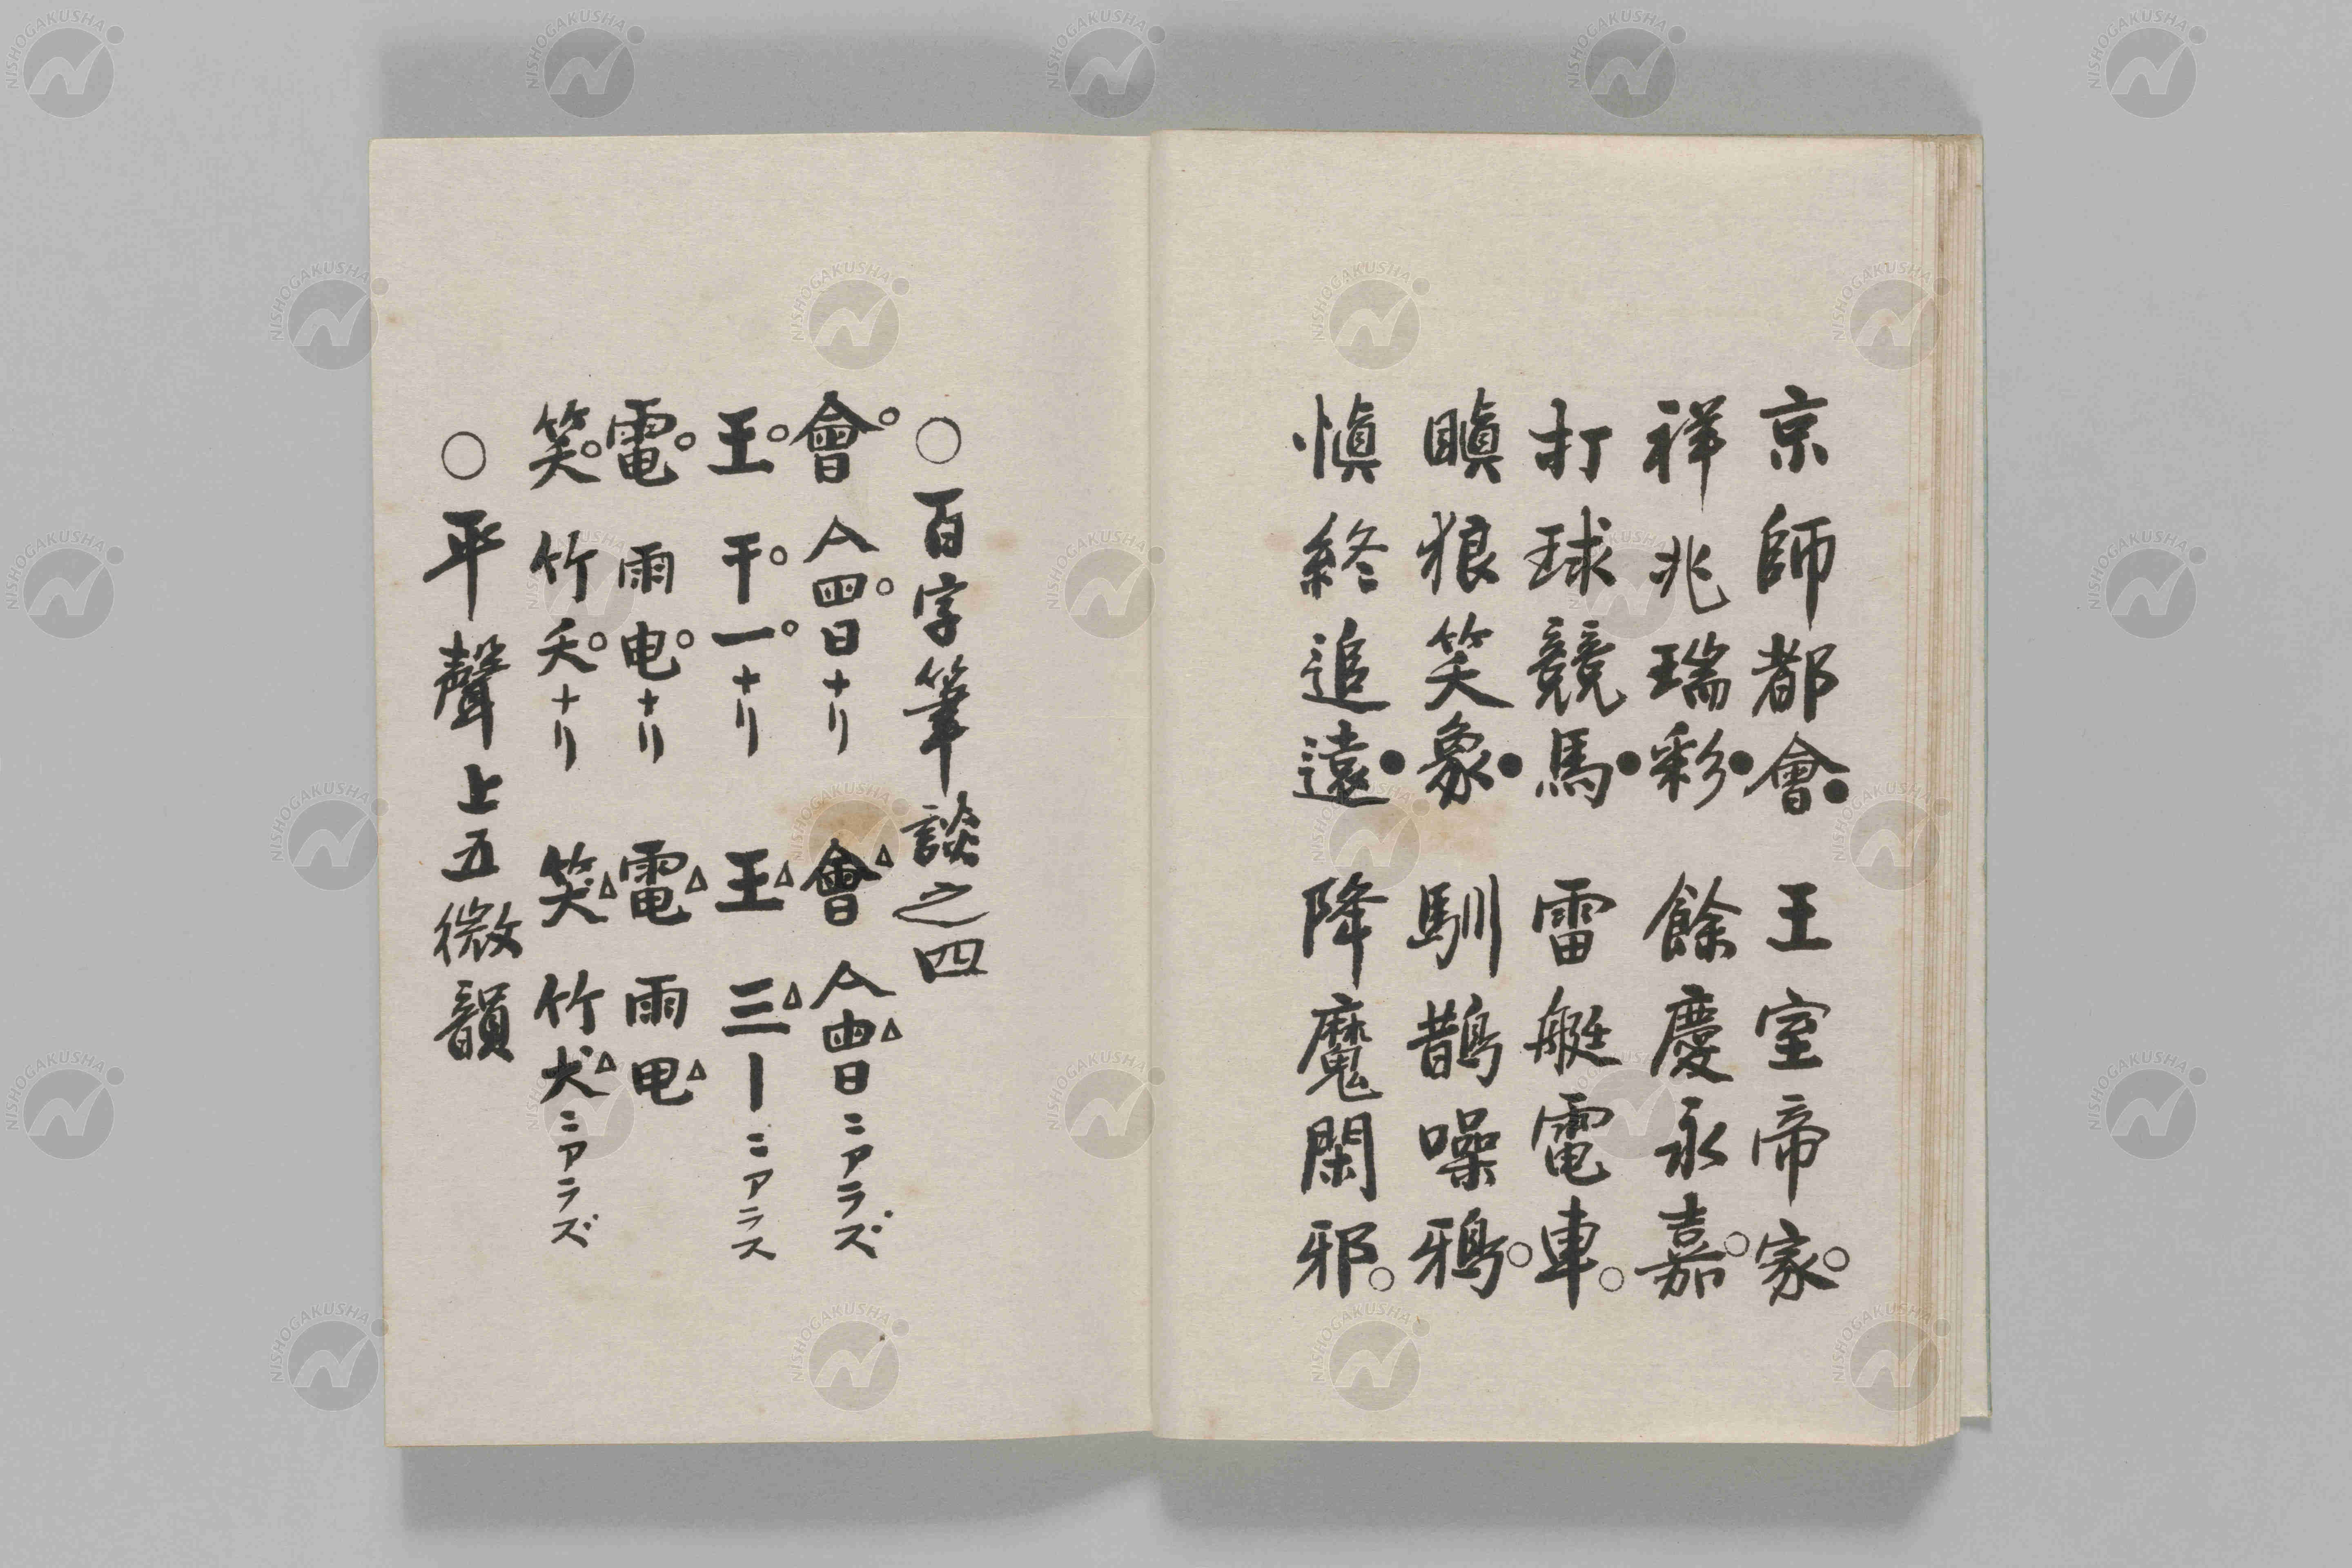 京師都會●王室帝家○
祥兆瑞彩●餘慶永嘉○
打球競馬●雷艇電車○
瞋狼笑象●馴鵲噪鴉○
愼終追遠●降魔閑邪○
○百字筆談之四
會○亼四○日ナリ 會△亼曲△日ニアラズ
王○干○一○ナリ 王△三△丨ニアラス
電○雨电○ナリ 電△雨甩△
笑○竹夭○ナリ 笑△竹犬△ニアラズ
○平聲上五微韻
NISHOGAKUSHA